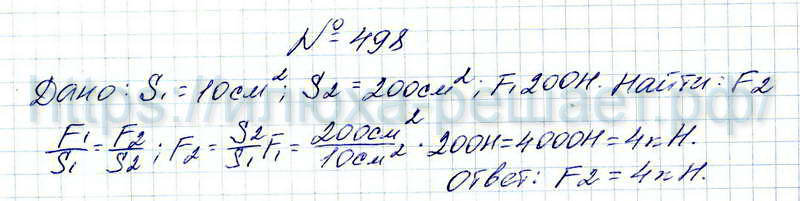 № 498
Дано: S₁ = 10см²; S2 = 200см²; F₁ 200Н. Найти: F2
F₁/S₁ = F2/S2; F₂ = S2/S₁ F₁ = 200см²/10см² · 200Н = 4000Н = 4кН.
Ответ: F2 = 4кН.